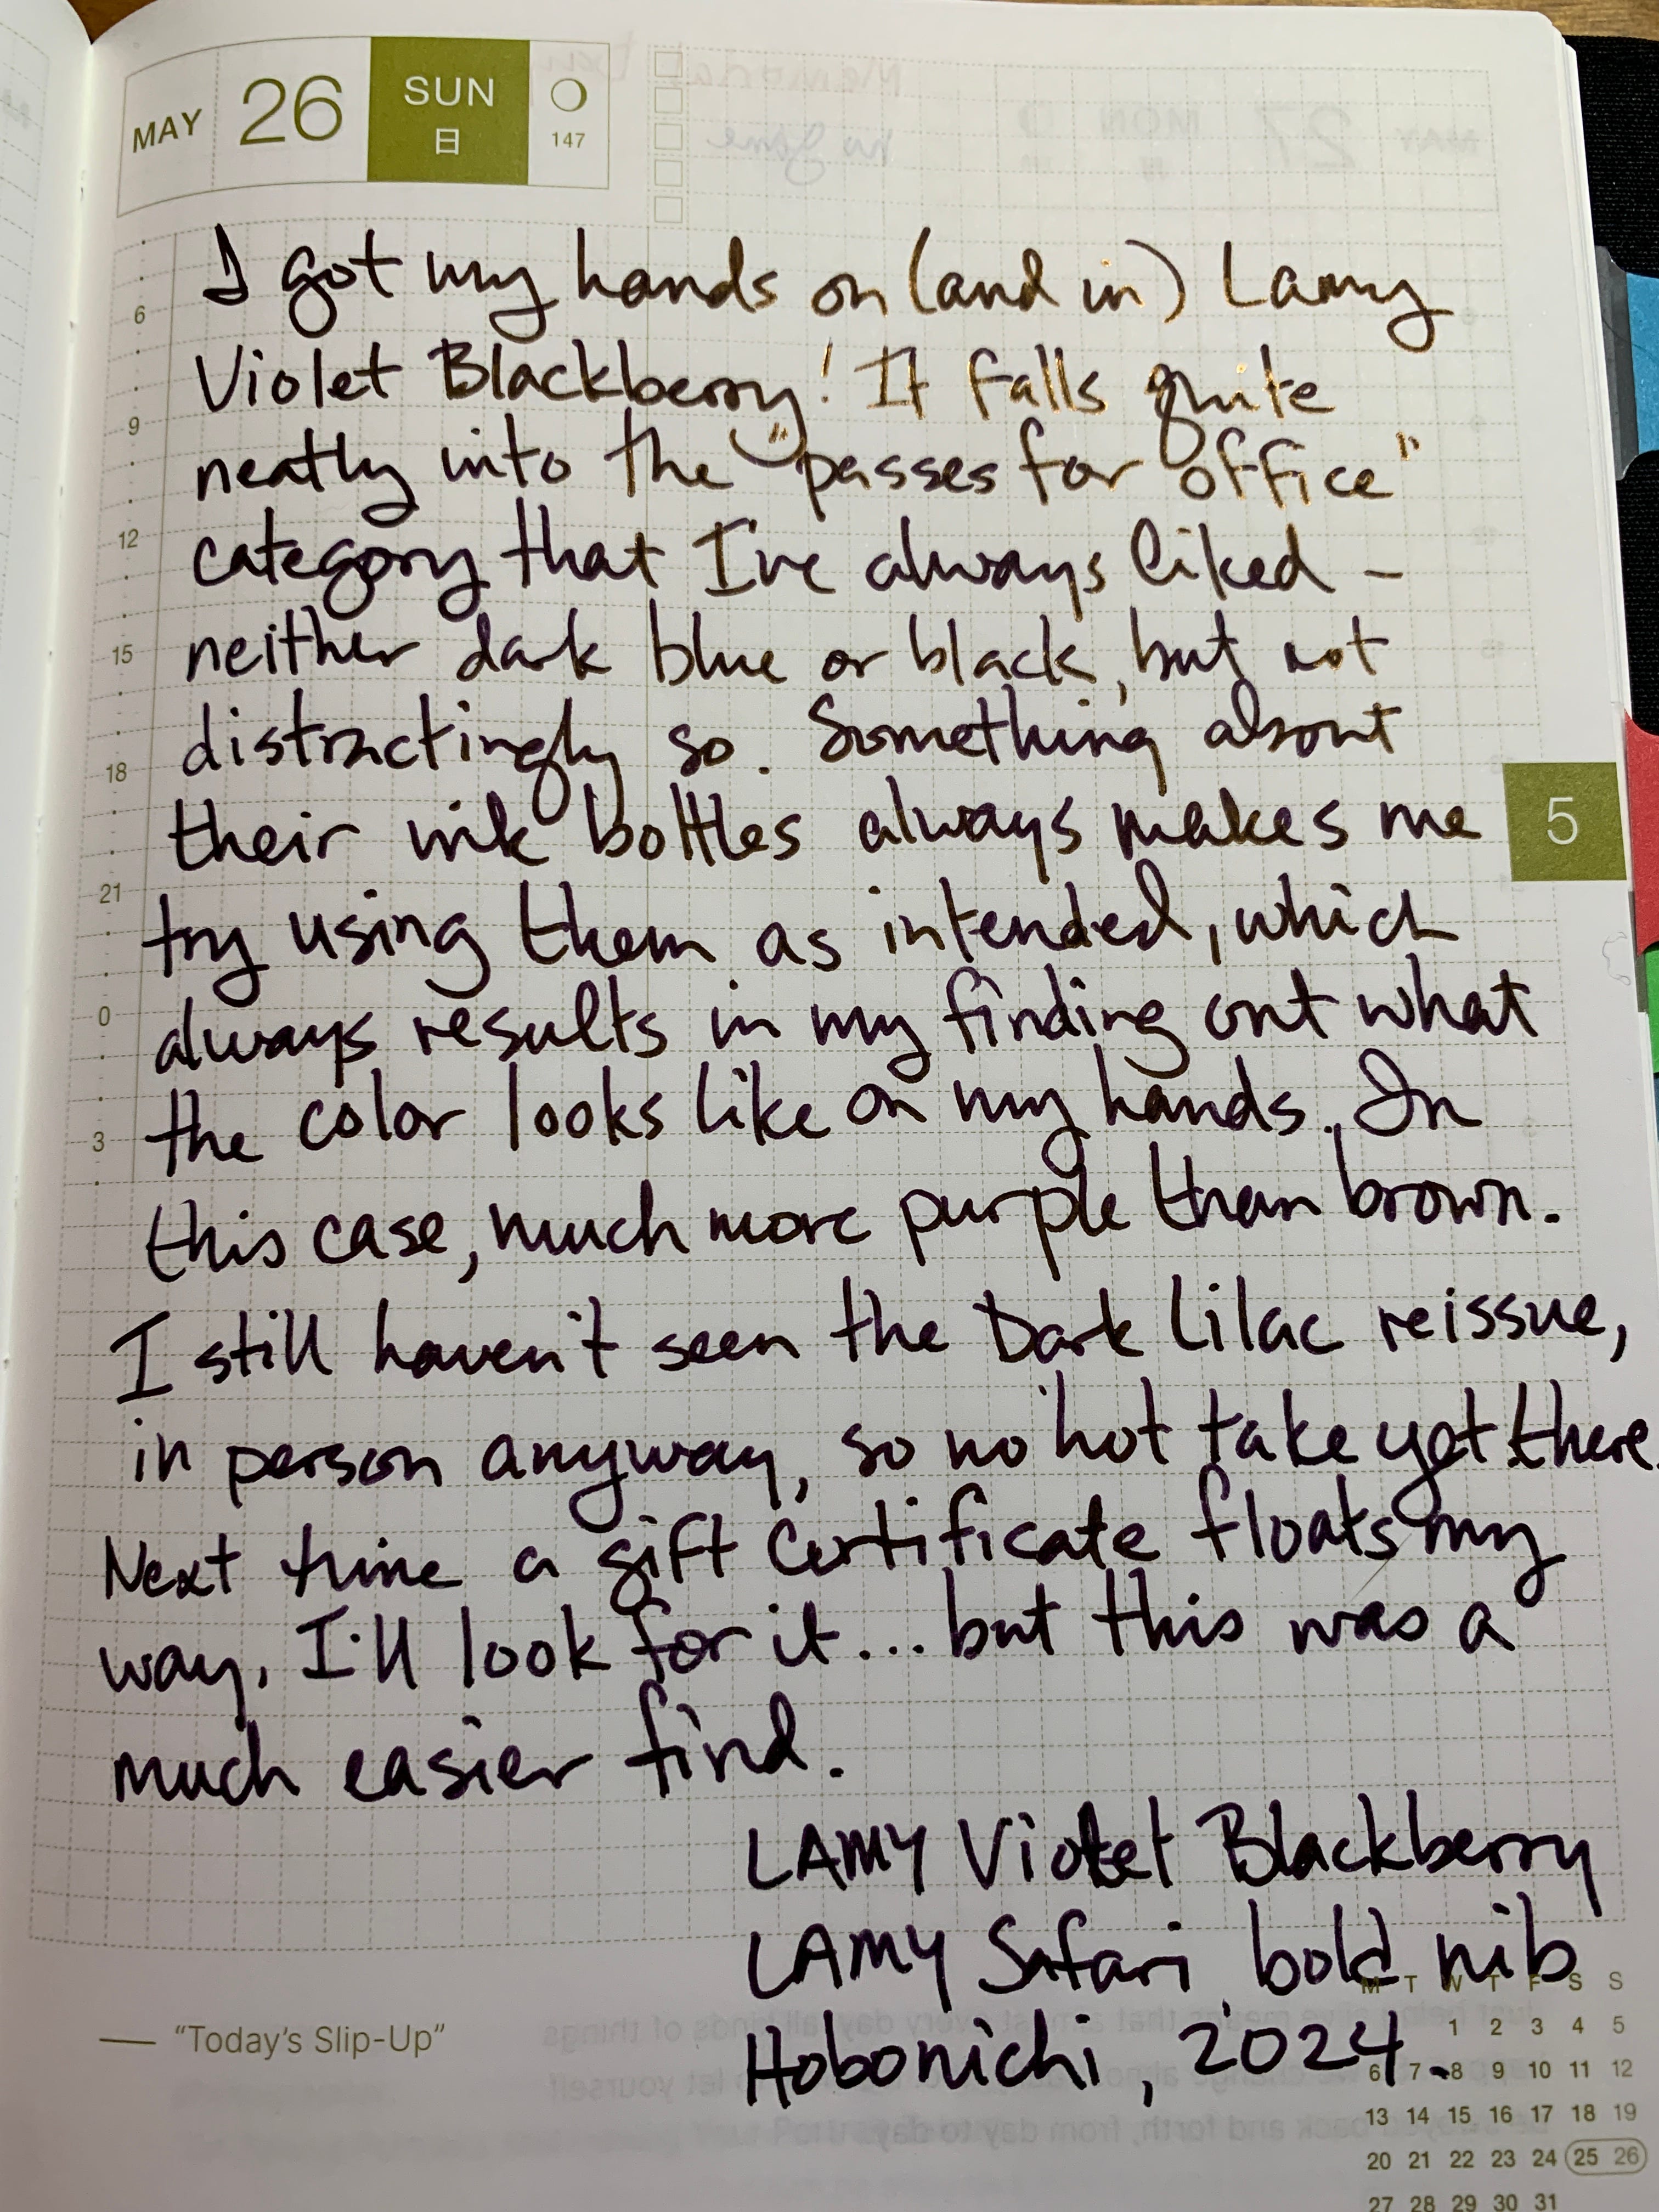 MAY 26 SUN 日 147
I got my hands on (and in) Lamy
Violet Blackberry! It falls quite
neatly into the "passes for office"
category that I've always liked –
neither dark blue or black, but not
distractingly so. Something about
their ink bottles always makes me
try using them as intended, which
always results in my finding out what
the color looks like on my hands. In
this case, much more purple than brown.
I still haven't seen the Dark Lilac reissue,
in person anyway, so no hot take yet there.
Next time a gift certificate floats my
way, I'll look for it... but this was a
much easier find.
LAMY Violet Blackberry
LAMY Safari, bold nib
Hobonichi, 2024.
6
9
12
15
18
21
0
3
5
— "Today's Slip-Up"
M T W T F S S
1 2 3 4 5
6 7 8 9 10 11 12
13 14 15 16 17 18 19
20 21 22 23 24 25 26
27 28 29 30 31